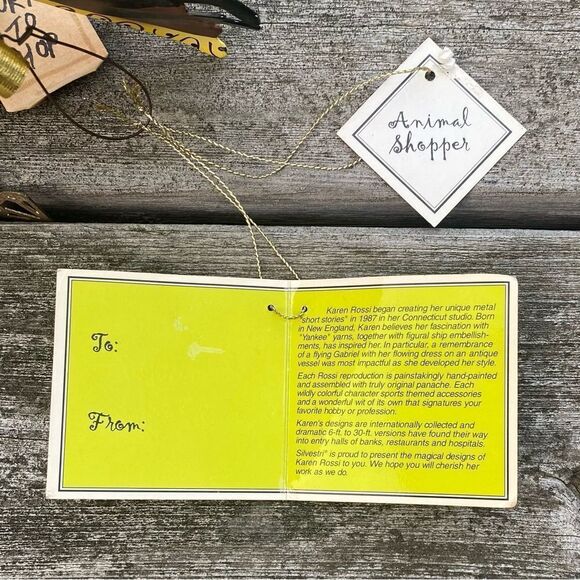 Animal
Shopper
To:
From:
Karen Rossi began creating her unique metal
"short stories" in 1987 in her Connecticut studio. Born
in New England, Karen believes her fascination with
"Yankee" yarns, together with figural ship embellish-
ments, has inspired her. In particular, a remembrance
of a flying Gabriel with her flowing dress on an antique
vessel was most impactful as she developed her style.
Each Rossi reproduction is painstakingly hand-painted
and assembled with truly original panache. Each
wildly colorful character sports themed accessories
and a wonderful wit of its own that signatures your
favorite hobby or profession.
Karen's designs are internationally collected and
dramatic 6-ft. to 30-ft. versions have found their way
into entry halls of banks, restaurants and hospitals.
Silvestri® is proud to present the magical designs of
Karen Rossi to you. We hope you will cherish her
work as we do.